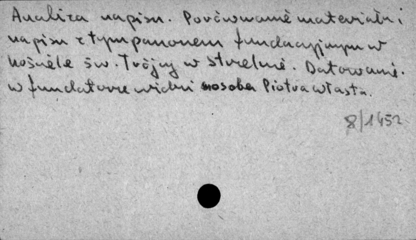 Analiza napisu. Porównanie materiału i
napisu z tympanonem fundacyjnym w
kościele św. Trójcy w Strzelnie. Datowanie.
w fundatorze widzi osobę Piotra Własta.
8/1452